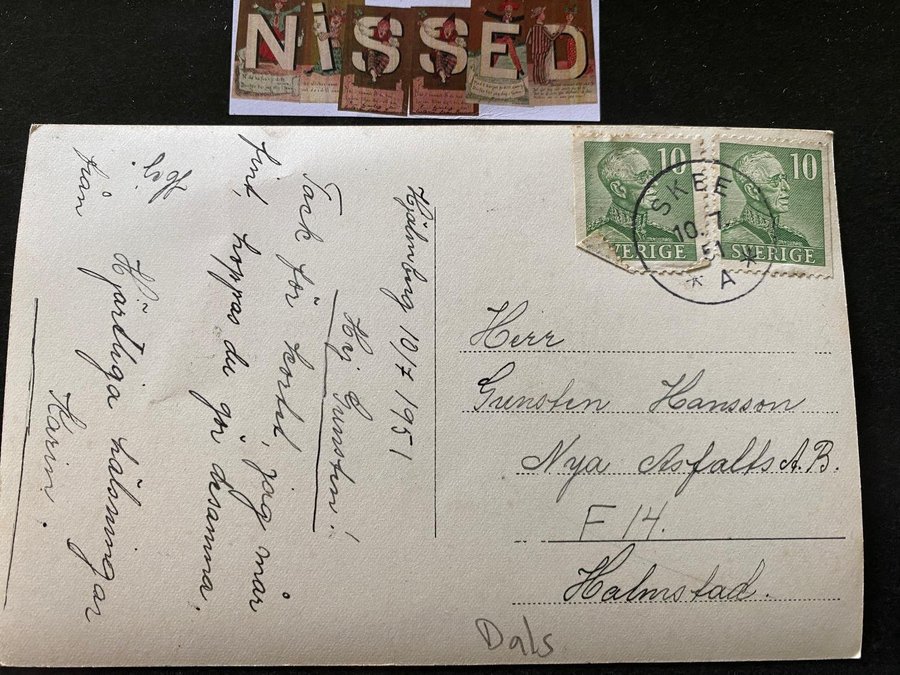 NISSED
10
SVERIGE
10
SVERIGE
SKEE
10.7.
51
* A *
Hjälmberg 10/7 1951
Hej Gunsten!
Tack för kortet, jag mår
fint, hoppas du gör desamma.
Hej
Hjärtliga hälsningar
från
Karin.
Herr
Gunsten Hansson
Nya Asfalts A.B.
F 14.
Halmstad.
Dals